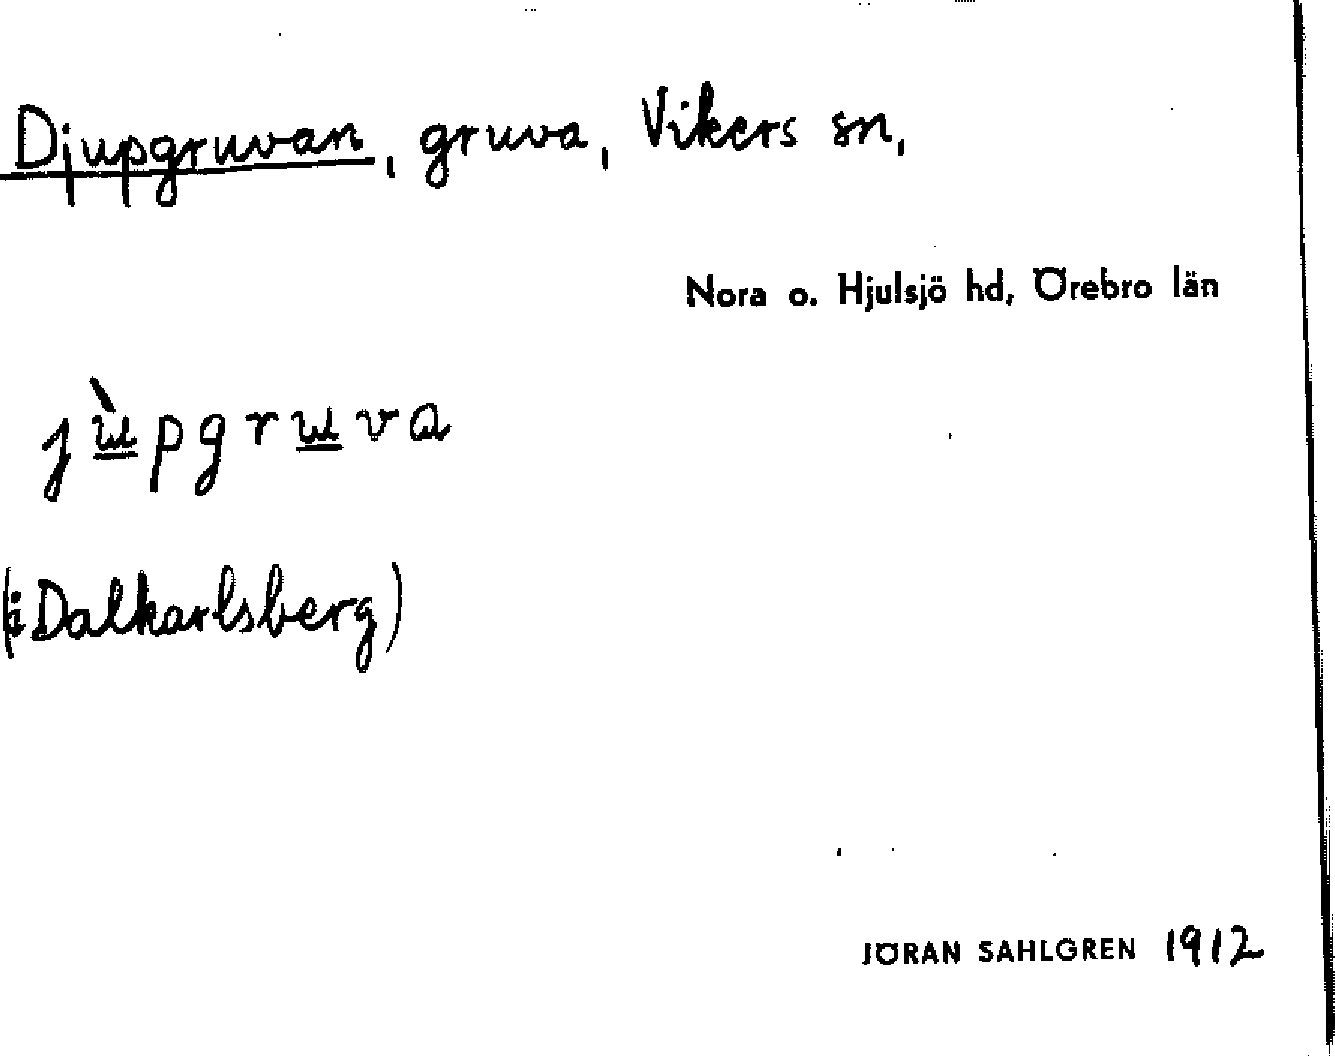 Djupgruvan, gruva, Vikers sn,
Nora o. Hjulsjö hd, Örebro län
jùpgruva
(i Dalkarlsberg)
JÖRAN SAHLGREN 1912